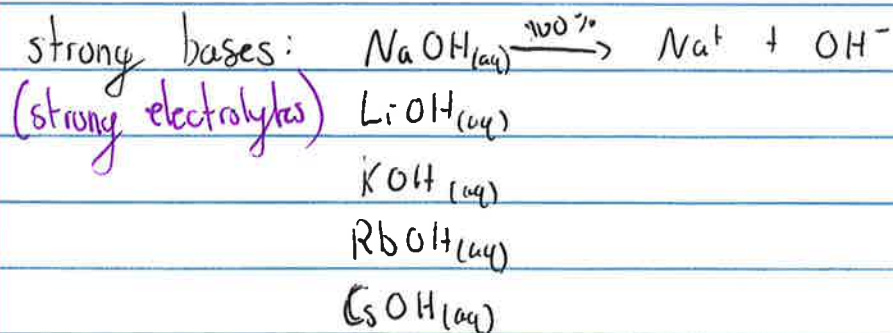 strong bases: NaOH(aq) 100% → Na+ + OH-
(strong electrolytes) LiOH(aq)
KOH (aq)
RbOH(aq)
CsOH(aq)